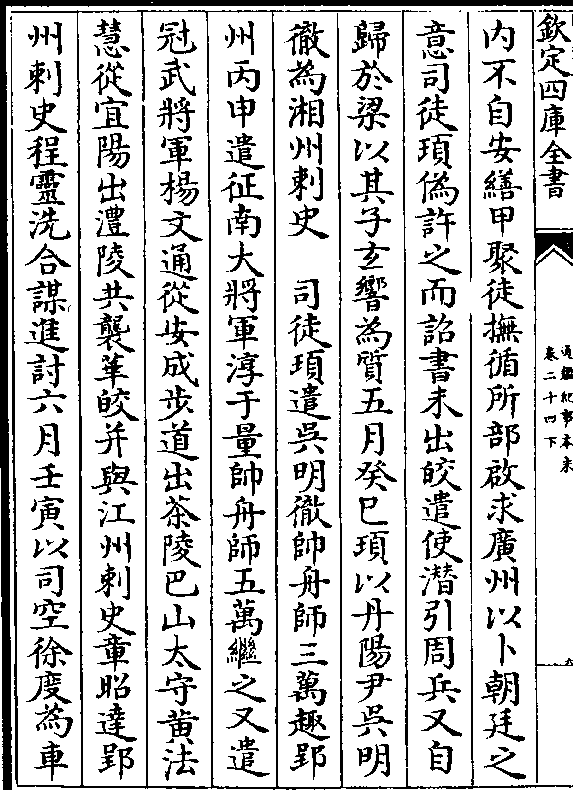 欽定四庫全書
通鑑紀事本末
卷二十四下
内不自安繕甲聚徒撫循所部啟求廣州以卜朝廷之
意司徒頊偽許之而詔書未出皎遣使潛引周兵又自
歸於梁以其子玄響為質五月癸巳頊以丹陽尹吳明
徹為湘州刺史　司徒頊遣吳明徹帥舟師三萬趣郢
州丙申遣征南大將軍淳于量帥舟師五萬繼之又遣
冠武將軍楊文通從安成步道出茶陵巴山太守黄法
慧從宜陽出澧陵共襲華皎并與江州刺史章昭達郢
州刺史程靈洗合謀進討六月壬寅以司空徐度為車